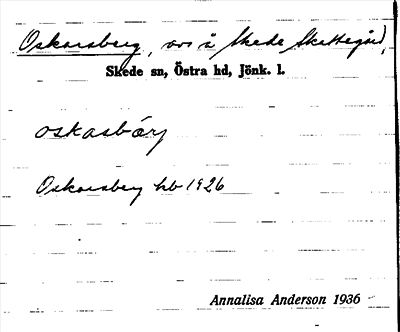 Oskarsberg, avs å Skede Skattegård,
Skede sn, Östra hd, Jönk. l.
oskasbärj
Oskarsberg hb 1926
Annalisa Anderson 1936